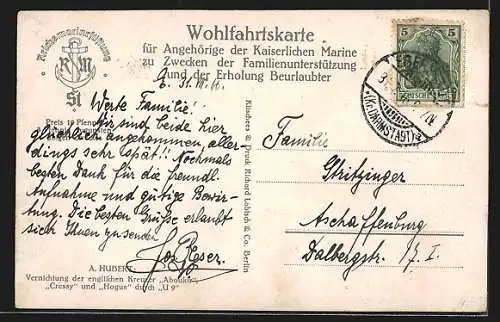 Reichs-marinestiftung
RM
St
Preis 10 Pfennig
Wohlfahrtskarte
für Angehörige der Kaiserlichen Marine
zu Zwecken der Familienunterstützung
und der Erholung Beurlaubter
5 5
(Kr. DARMSTADT)
Werte Familie!
Wir sind beide hier
glücklich angekommen, aller-
dings sehr spät! Nochmals
besten Dank für die freundl.
Aufnahme und gütige Bewir-
tung. Die besten Grüße erlaubt
sich Ihnen zu senden
A. HUBERT:
Vernichtung der englischen Kreuzer „Aboukir",
„Cressy" und „Hogue" durch „U 9"
Klischees & Druck Richard Labisch & Co. Berlin
Familie
Stritzinger
Aschaffenburg
Dalbergstr.